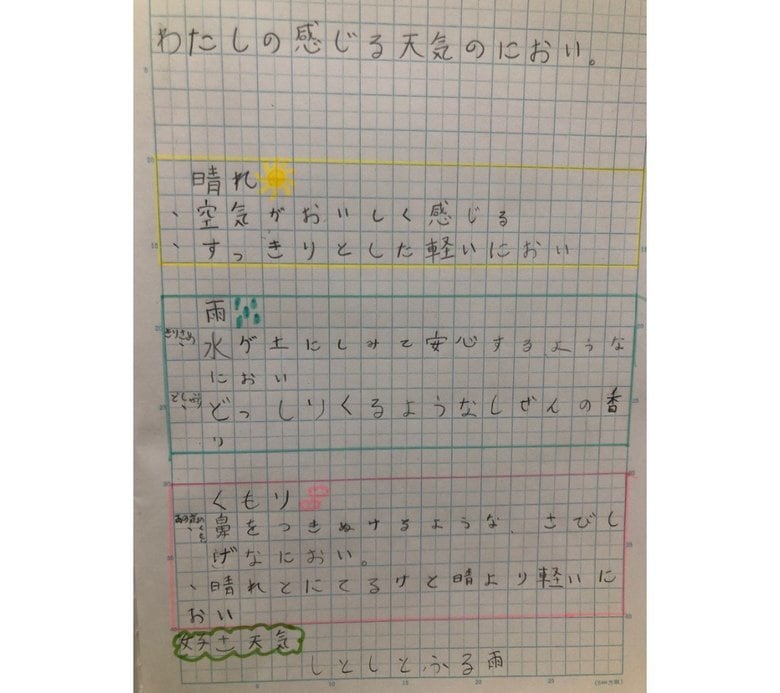 わたしの感じる天気のにおい。
晴れ
、空気がおいしく感じる
、すっきりとした軽いにおい
雨
、水が土にしみて安心するような
におい
、どっしりくるようなしぜんの香
り
くもり
、鼻をつきぬけるような、さびし
げなにおい。
、晴れとにてるけど晴より軽いに
おい
好きな天気
しとしとふる雨